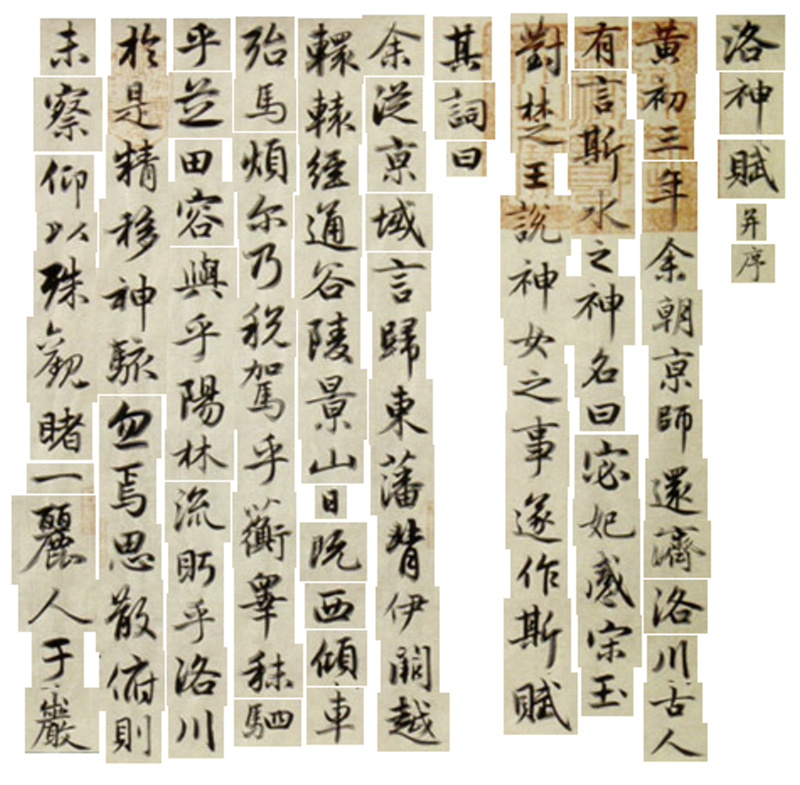 洛神賦并序
黄初三年余朝京師還濟洛川古人
有言斯水之神名曰宓妃感宋玉
對楚王說神女之事遂作斯賦
其詞曰
余從京域言歸東藩背伊闕越
轘轅經通谷陵景山日既西傾車
殆馬煩尔乃税駕乎蘅皋秣駟
乎芝田容與乎陽林流眄乎洛川
於是精移神駭忽焉思散俯則
未察仰以殊觀睹一麗人于巖